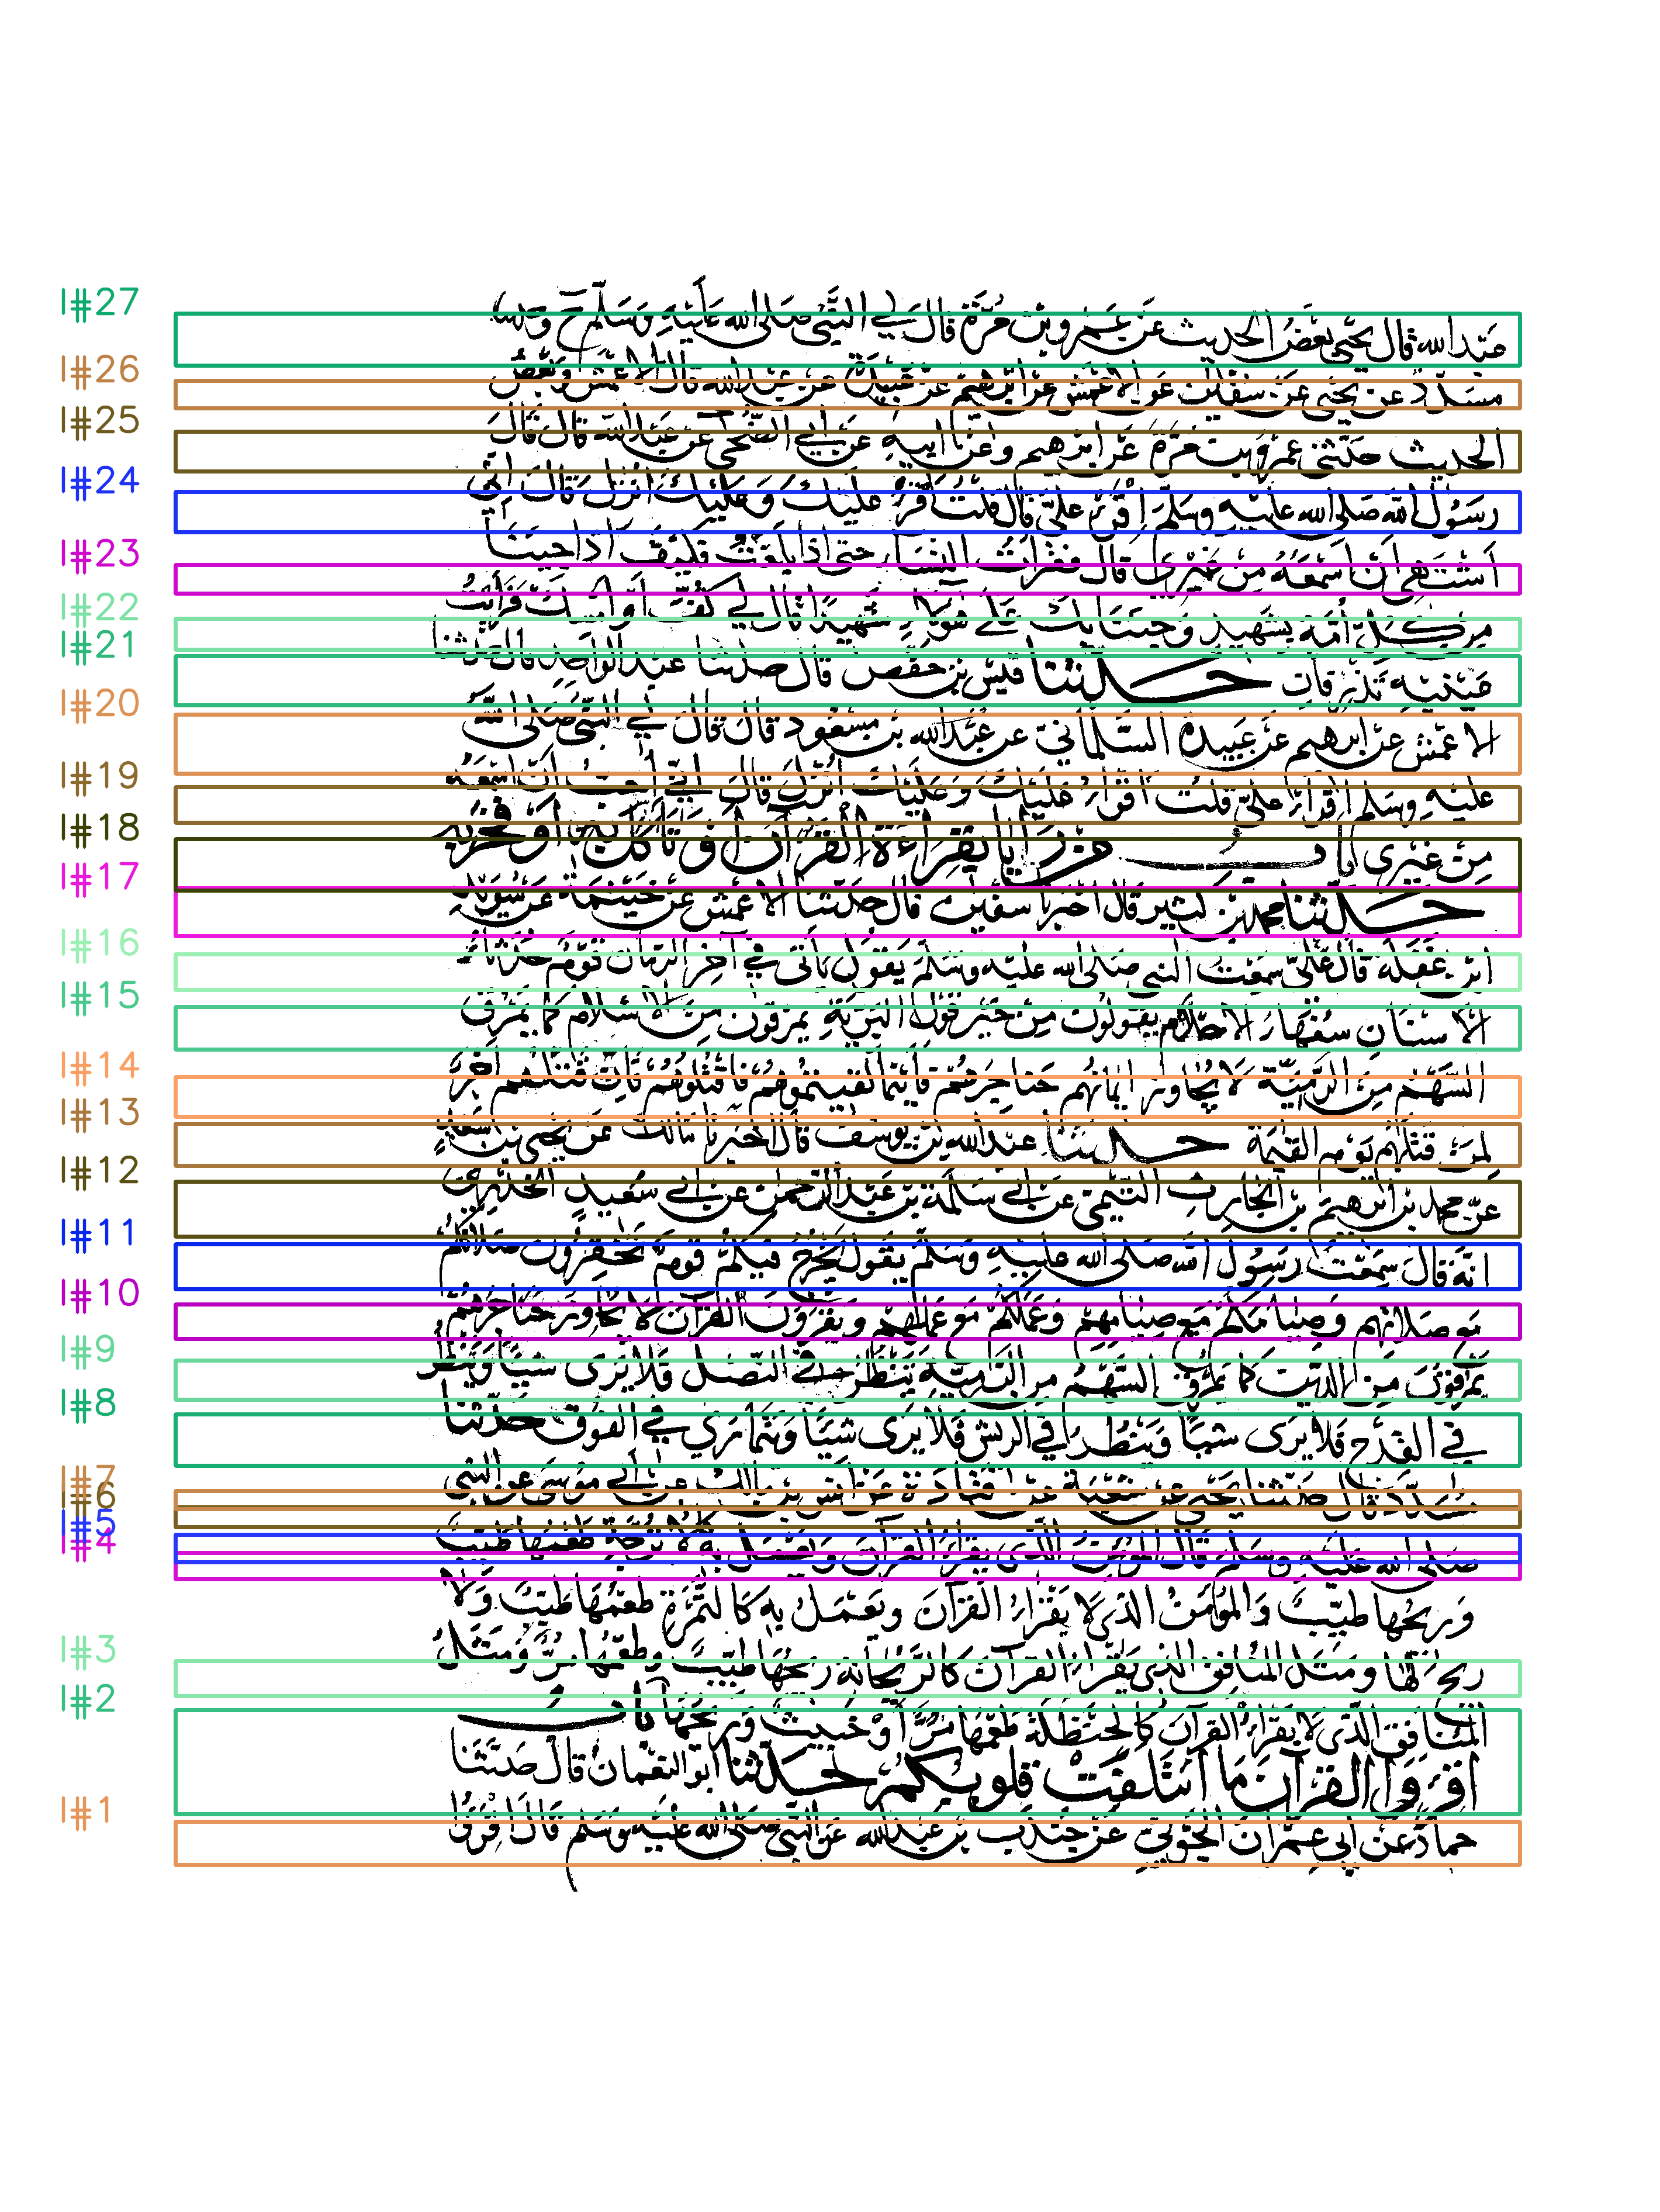 صدالله قال يحيى بعض الحديث عن عمرو بن مرة قال لي النبي صلى الله عليه وسلم ح وحدثنا
مسدد عن يحيى عن سفيان عن الاعمش عن ابرهيم عن عبيدة عن عبدالله قال الاعمش وبعض
الحديث حدثني عمرو بن مرة عن ابرهيم وعن ابيه عن ابي الضحى عن عبدالله قال قال
رسول الله صلى الله عليه وسلم اقرأ علي قال قلت اقرأ عليك وعليك انزل قال اني
اشتهي ان اسمعه من غيري قال فقرات النساء حتى اذا بلغت فكيف اذا جينا
من كل امة بشهيد وجينا بك على هؤلاء شهيدا قال لي كف او امسك فرايت
عينيه تذرفان حدثنا قيس بن حفص قال حدثنا عبد الواحد قال حدثنا
الاعمش عن ابرهيم عن عبيدة السلماني عن عبدالله بن مسعود قال قال لي النبي صلى الله
عليه وسلم اقرأ علي قلت اقرأ عليك وعليك انزل قال اني احب ان اسمعه
من غيري باب من رايا بقراءة القرآن او تاكل به او فخر به
حدثنا محمد بن كثير قال اخبرنا سفين قال حدثنا الاعمش عن خيثمة عن سويد
ابن غفلة قال علي سمعت النبي صلى الله عليه وسلم يقول ياتي في آخر الزمان قوم حدثاء
الاسنان سفهاء الاحلام يقولون من خير قول البرية يمرقون من الاسلام كما يمرق
السهم من الرمية لا يجاوز ايمانهم حناجرهم فاينما لقيتموهم فاقتلوهم فان قتلهم اجر
لمن قتلهم يوم القيمة حدثنا عبدالله بن يوسف قال اخبرنا مالك عن يحيى بن سعيد
عن محمد بن ابرهيم بن الحارث التيمي عن ابي سلمة بن عبد الرحمن عن ابي سعيد الخدري
انه قال سمعت رسول الله صلى الله عليه وسلم يقول يخرج فيكم قوم تحقرون صلاتكم
مع صلاتهم وصيامكم مع صيامهم وعملكم مع عملهم ويقرؤن القرآن لا يجاوز حناجرهم
يمرقون من الدين كما يمرق السهم من الرمية ينظر في النصل فلا يرى شيئا وينظر
في القدح فلا يرى شيئا وينظر في الريش فلا يرى شيئا ويتمارى في الفوق حدثنا
مسدد قال حدثنا يحيى عن شعبة عن قتادة عن انس بن مالك عن ابي موسى عن النبي
صلى الله عليه وسلم قال المؤمن الذي يقرأ القرآن ويعمل به كالاترجة طعمها طيب
وريحها طيب والمؤمن الذي لا يقرأ القرآن ويعمل به كالتمرة طعمها طيب ولا
ريح لها ومثل المنافق الذي يقرأ القرآن كالريحانة ريحها طيب وطعمها مر ومثل
المنافق الذي لا يقرأ القرآن كالحنظلة طعمها مر او خبيث وريحها باب
اقرؤا القرآن ما ائتلفت قلوبكم حدثنا ابو النعمان قال حدثنا
حماد عن ابي عمران الجوني عن جندب بن عبدالله عن النبي صلى الله عليه وسلم قال اقرؤا